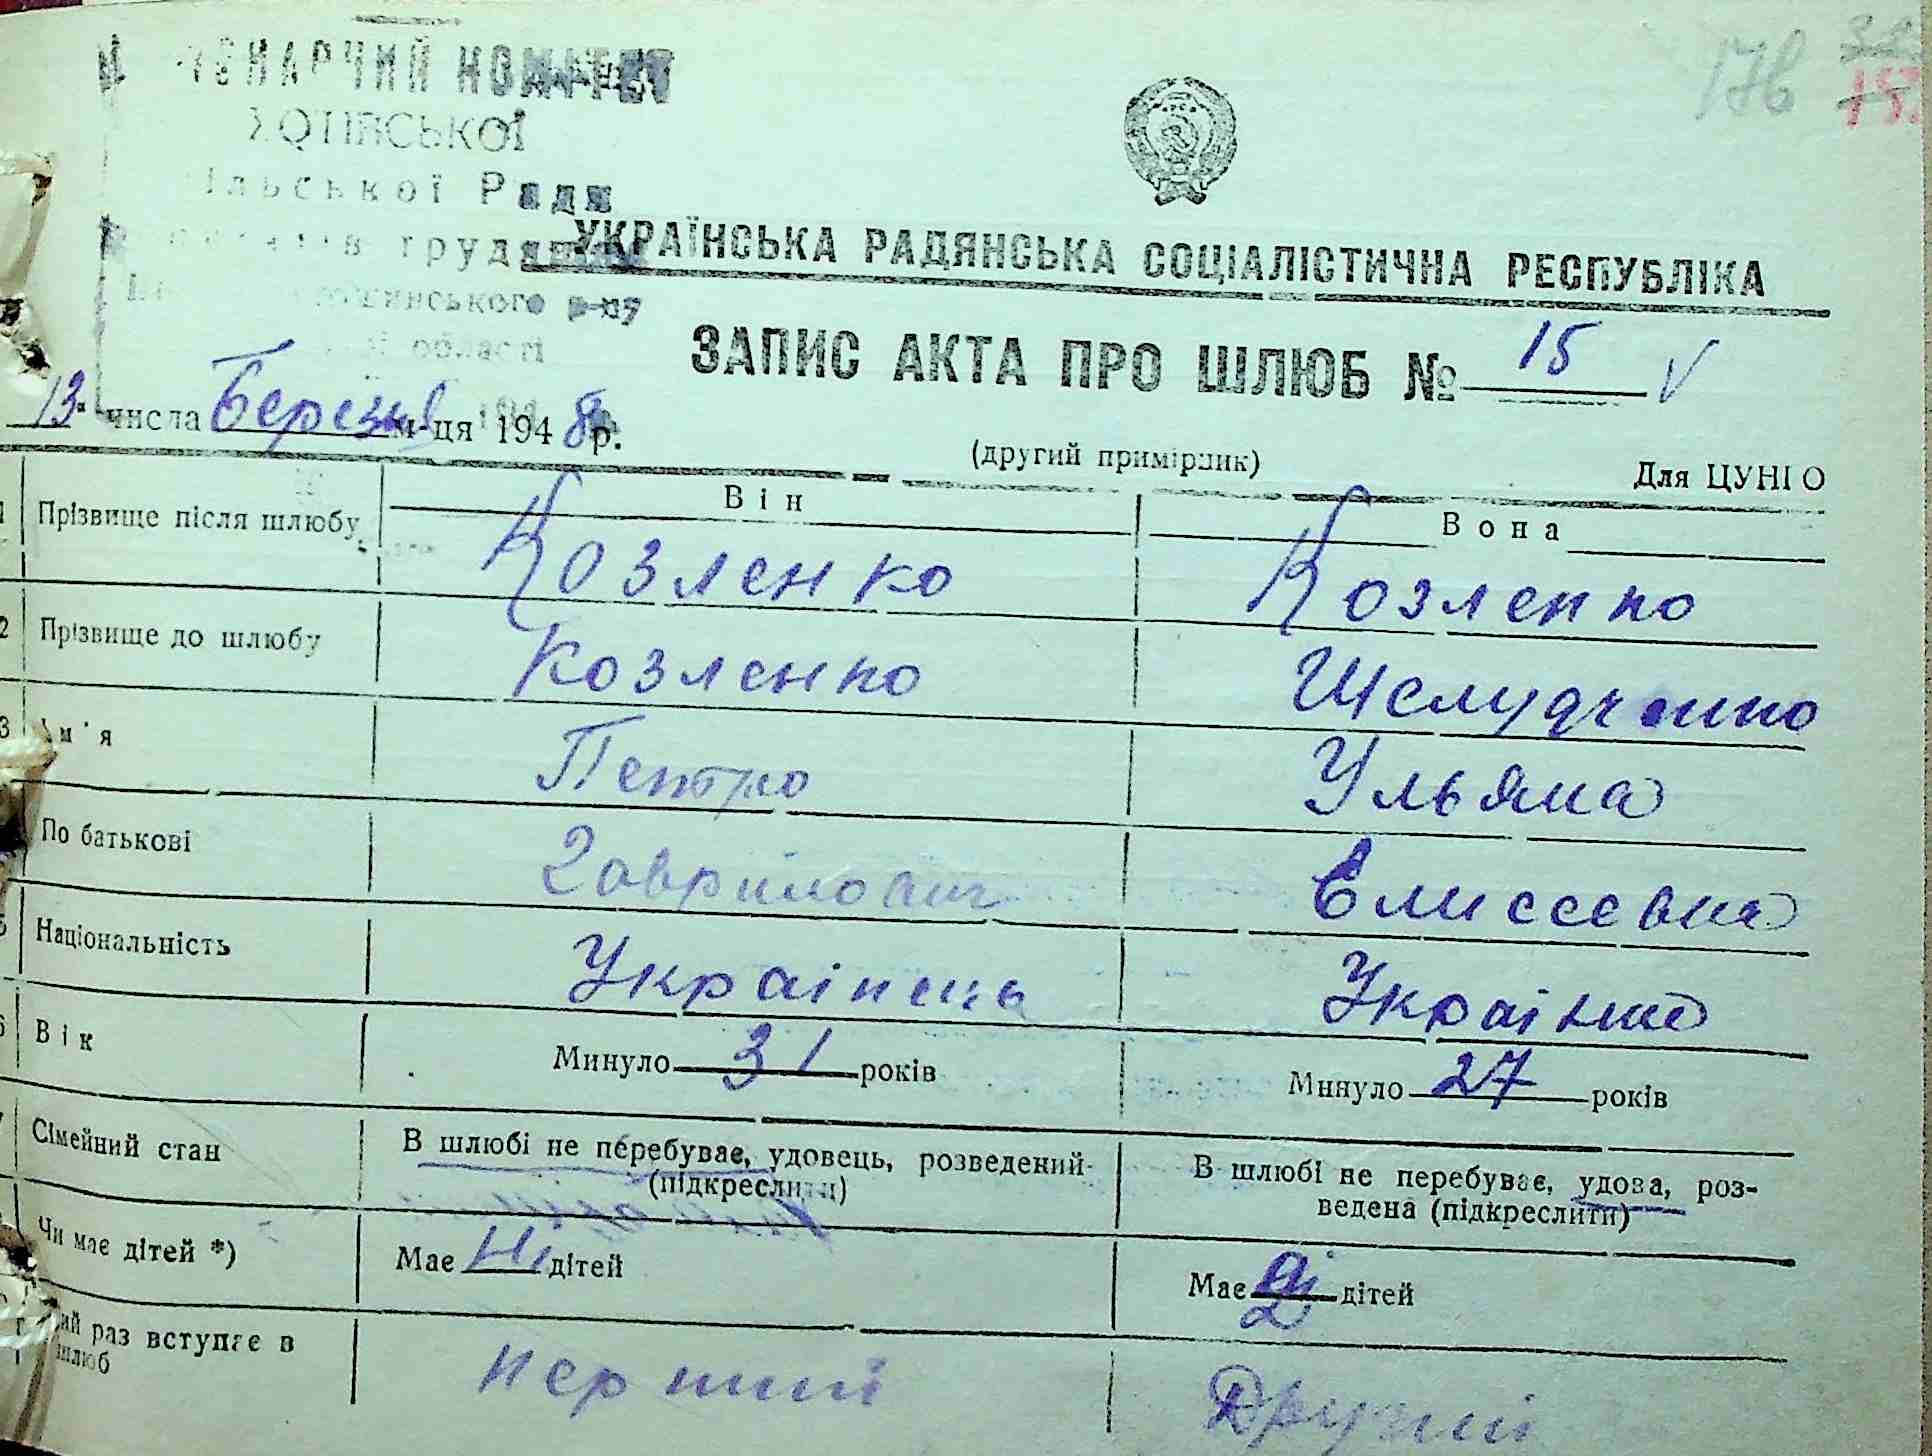 176
157
КОМІТЕТ
ХОТІВСЬКОЇ
Сільської Ради
трудящих
області
УКРАЇНСЬКА РАДЯНСЬКА СОЦІАЛІСТИЧНА РЕСПУБЛІКА
ЗАПИС АКТА ПРО ШЛЮБ № 15 V
13 числа Березня м-ця 1948 р.
(другий примірник)
Для ЦУНГО
Він
Вона
1 Прізвище після шлюбу Козленко Козленко
2 Прізвище до шлюбу Козленко Шелудченко
3 Ім'я Петро Ульяна
По батькові Гаврилович Елисеевна
5 Національність Українець Українка
6 Вік Минуло 31 років Минуло 27 років
7 Сімейний стан В шлюбі не перебуває, удовець, розведений (підкреслити) В шлюбі не перебуває, удова, розведена (підкреслити)
Чи має дітей *) Має Ні дітей Має 2 дітей
раз вступає в шлюб перший Другий